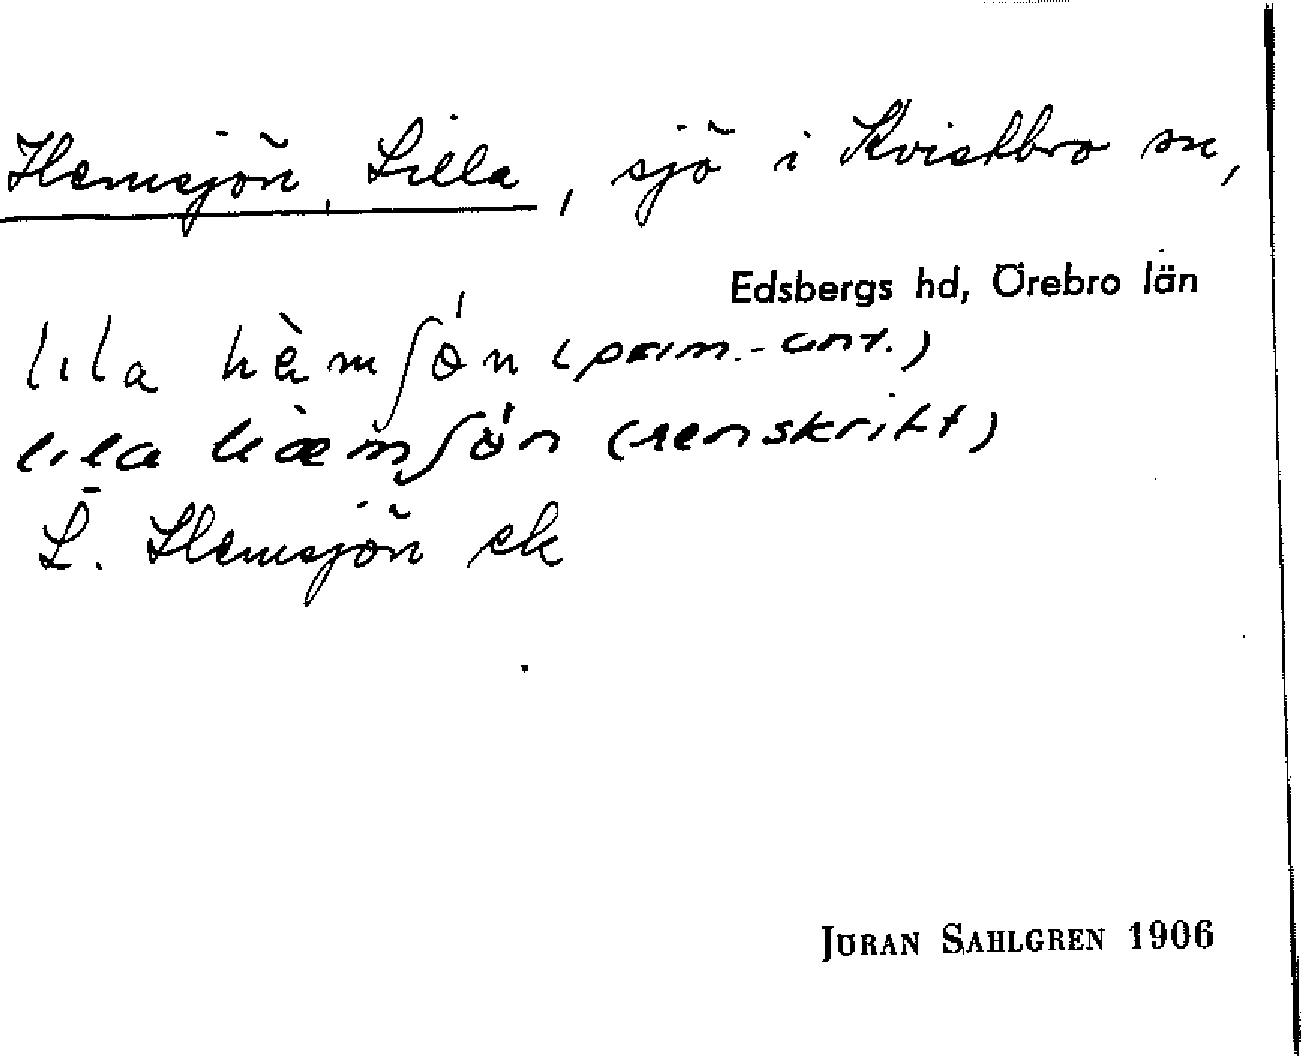 Hemsjön, Lilla, sjö i Kvistbro sn,
Edsbergs hd, Örebro län
lila hèmʃön (prim.-ant.)
lila hæ̀mʃön (renskrift)
L. Hemsjön ek
JÖRAN SAHLGREN 1906